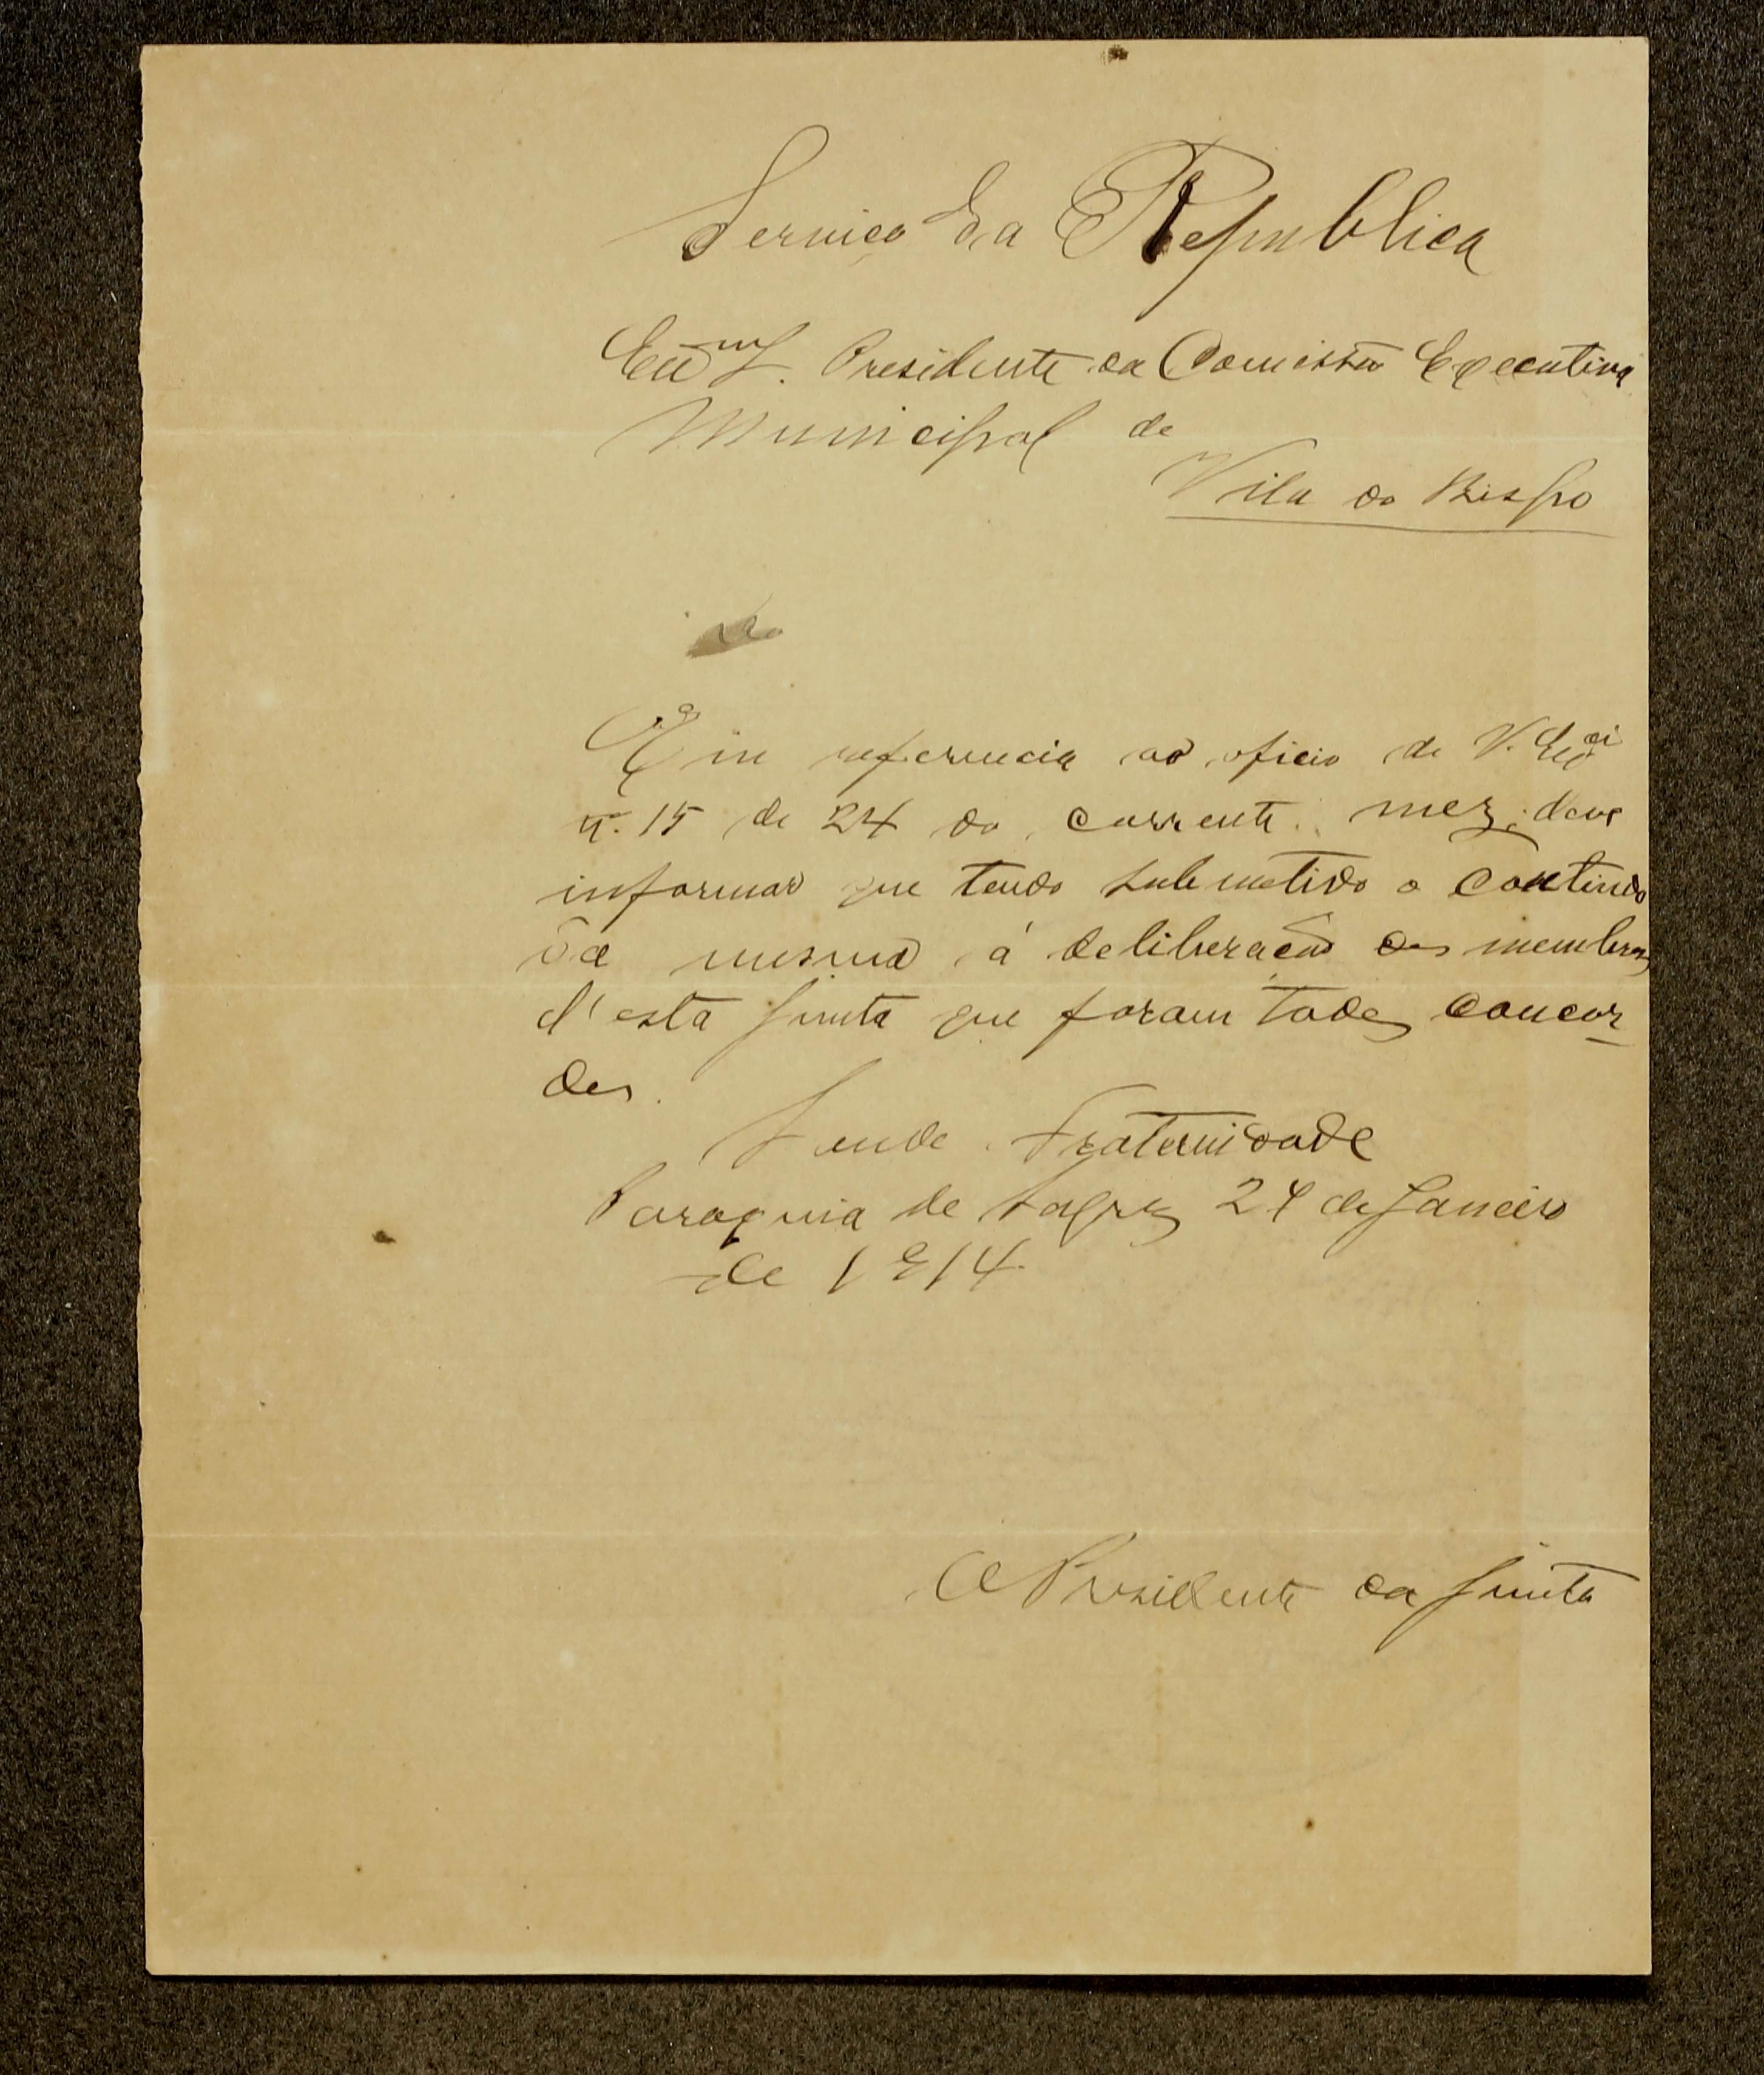 Serviço da Republica
Exmo Sr. Presidente da Comissão Executiva
Municipal de
Vila do Bispo
Em referencia ao oficio de V. Excia
nº. 15 de 24 do corrente mez, devo
informar que tendo submetido o contiudo
do mesmo á deliberação dos membros
d'esta Junta que foram todos concor-
des.
Saude Fraternidade
Paroquia de Sagres 24 de Janeiro
de 1914.
O Presidente da Junta